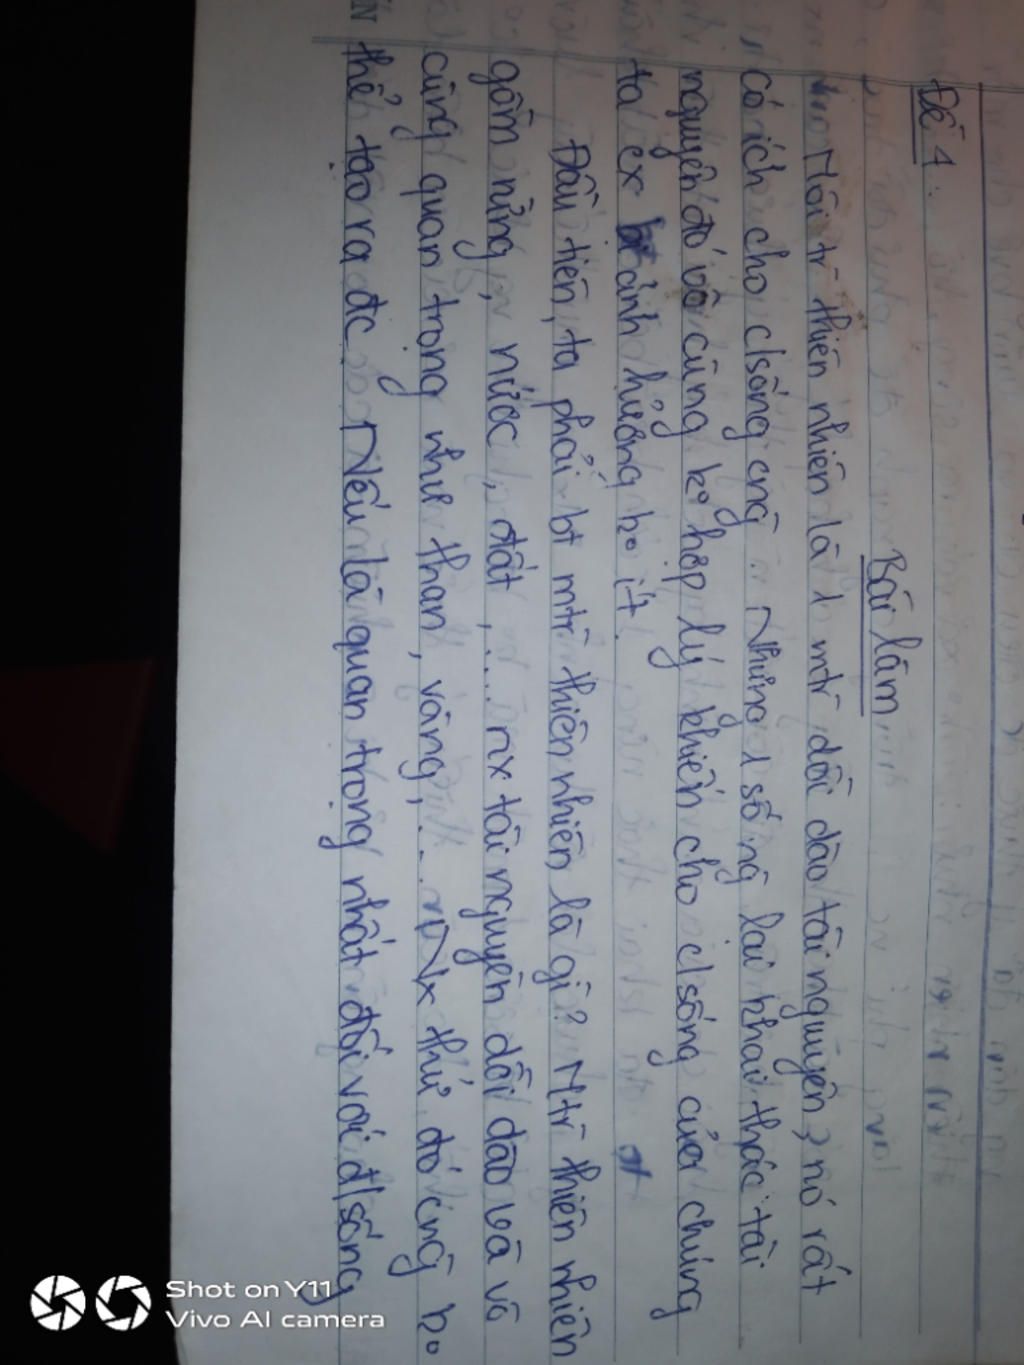 Đề 4.
Bài làm
Môi tr` thiên nhiên là 1 mtr` dồi dào tài nguyên, nó rất
có ích cho c/sống cng~. Nhưng 1 số ng` lại khai thác tài
nguyên đó vô cùng ko hợp lý khiến cho c/sống của chúng
ta ảnh hưởng ko ít.
Đầu tiên, ta phải bt mtr` thiên nhiên là gì? Mtr` thiên nhiên
gồm rừng, nước, đất,.... nx tài nguyên dồi dào và vô
cùng quan trọng như than, vàng,... Nx thứ đó cng~ ko
thể tạo ra đc. Nếu là quan trọng nhất đối với đ/sống
Shot on Y11
Vivo AI camera